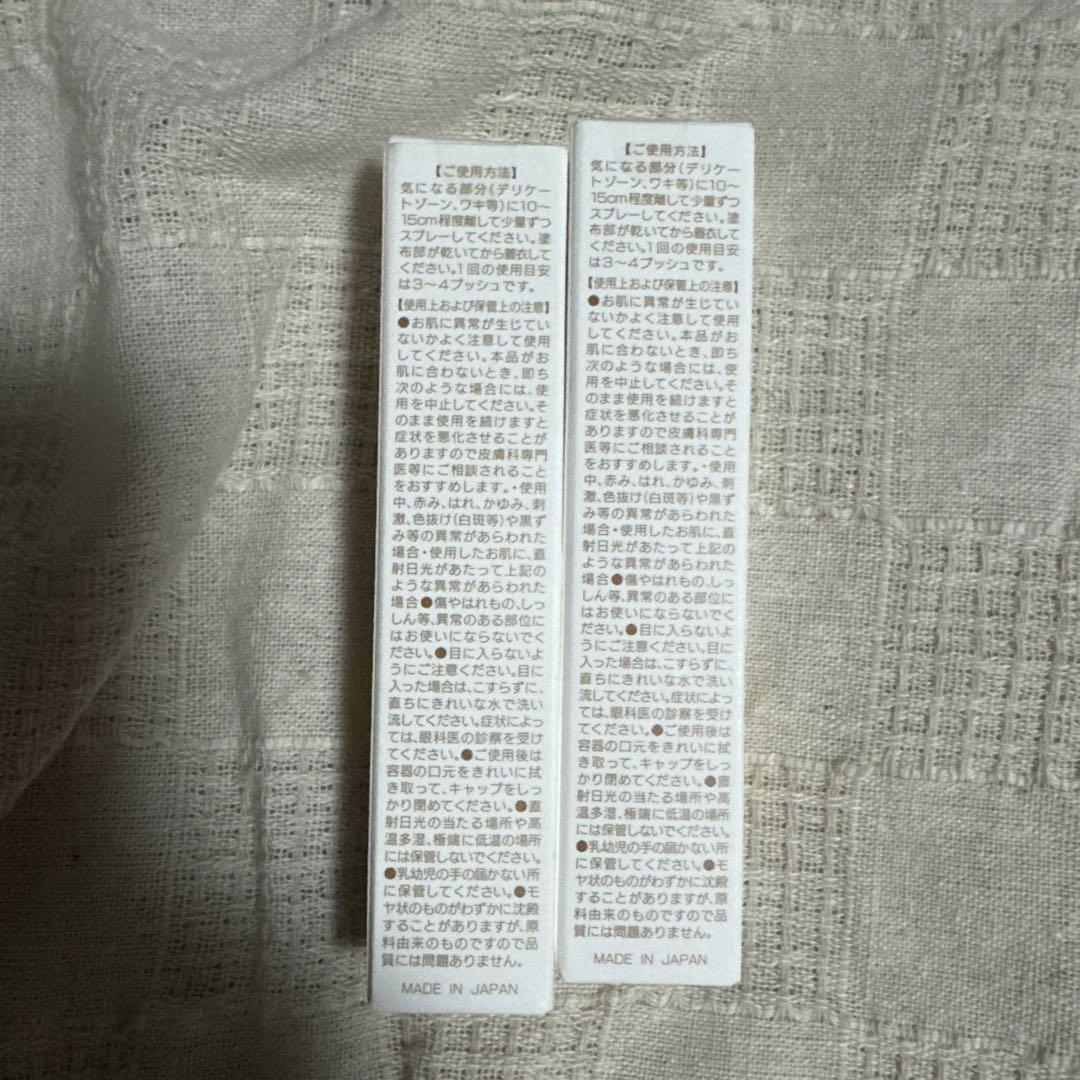 【ご使用方法】
気になる部分(デリケー
トゾーン、ワキ等)に10〜
15cm程度離して少量ずつ
スプレーしてください。塗
布部が乾いてから着衣して
ください。1回の使用目安
は3〜4プッシュです。
【使用上および保管上の注意】
●お肌に異常が生じてい
ないかよく注意して使用
してください。本品がお
肌に合わないとき、即ち
次のような場合には、使
用を中止してください。そ
のまま使用を続けますと
症状を悪化させることが
ありますので皮膚科専門
医等にご相談されること
をおすすめします。・使用
中、赤み、はれ、かゆみ、刺
激、色抜け(白斑等)や黒ず
み等の異常があらわれた
場合・使用したお肌に、直
射日光があたって上記の
ような異常があらわれた
場合●傷やはれもの、しっ
しん等、異常のある部位に
はお使いにならないでく
ださい。●目に入らないよ
うにご注意ください。目に
入った場合は、こすらずに、
直ちにきれいな水で洗い
流してください。症状によっ
ては、眼科医の診察を受け
てください。●ご使用後は
容器の口元をきれいに拭
き取って、キャップをしっ
かり閉めてください。●直
射日光の当たる場所や高
温多湿、極端に低温の場所
には保管しないでください。
●乳幼児の手の届かない所
に保管してください。●モ
ヤ状のものがわずかに沈殿
することがありますが、原
料由来のものですので品
質には問題ありません。
MADE IN JAPAN
【ご使用方法】
気になる部分(デリケー
トゾーン、ワキ等)に10〜
15cm程度離して少量ずつ
スプレーしてください。塗
布部が乾いてから着衣して
ください。1回の使用目安
は3〜4プッシュです。
【使用上および保管上の注意】
●お肌に異常が生じてい
ないかよく注意して使用
してください。本品がお
肌に合わないとき、即ち
次のような場合には、使
用を中止してください。そ
のまま使用を続けますと
症状を悪化させることが
ありますので皮膚科専門
医等にご相談されること
をおすすめします。・使用
中、赤み、はれ、かゆみ、刺
激、色抜け(白斑等)や黒ず
み等の異常があらわれた
場合・使用したお肌に、直
射日光があたって上記の
ような異常があらわれた
場合●傷やはれもの、しっ
しん等、異常のある部位に
はお使いにならないでく
ださい。●目に入らないよ
うにご注意ください。目に
入った場合は、こすらずに、
直ちにきれいな水で洗い
流してください。症状によっ
ては、眼科医の診察を受け
てください。●ご使用後は
容器の口元をきれいに拭
き取って、キャップをしっ
かり閉めてください。●直
射日光の当たる場所や高
温多湿、極端に低温の場所
には保管しないでください。
●乳幼児の手の届かない所
に保管してください。●モ
ヤ状のものがわずかに沈殿
することがありますが、原
料由来のものですので品
質には問題ありません。
MADE IN JAPAN